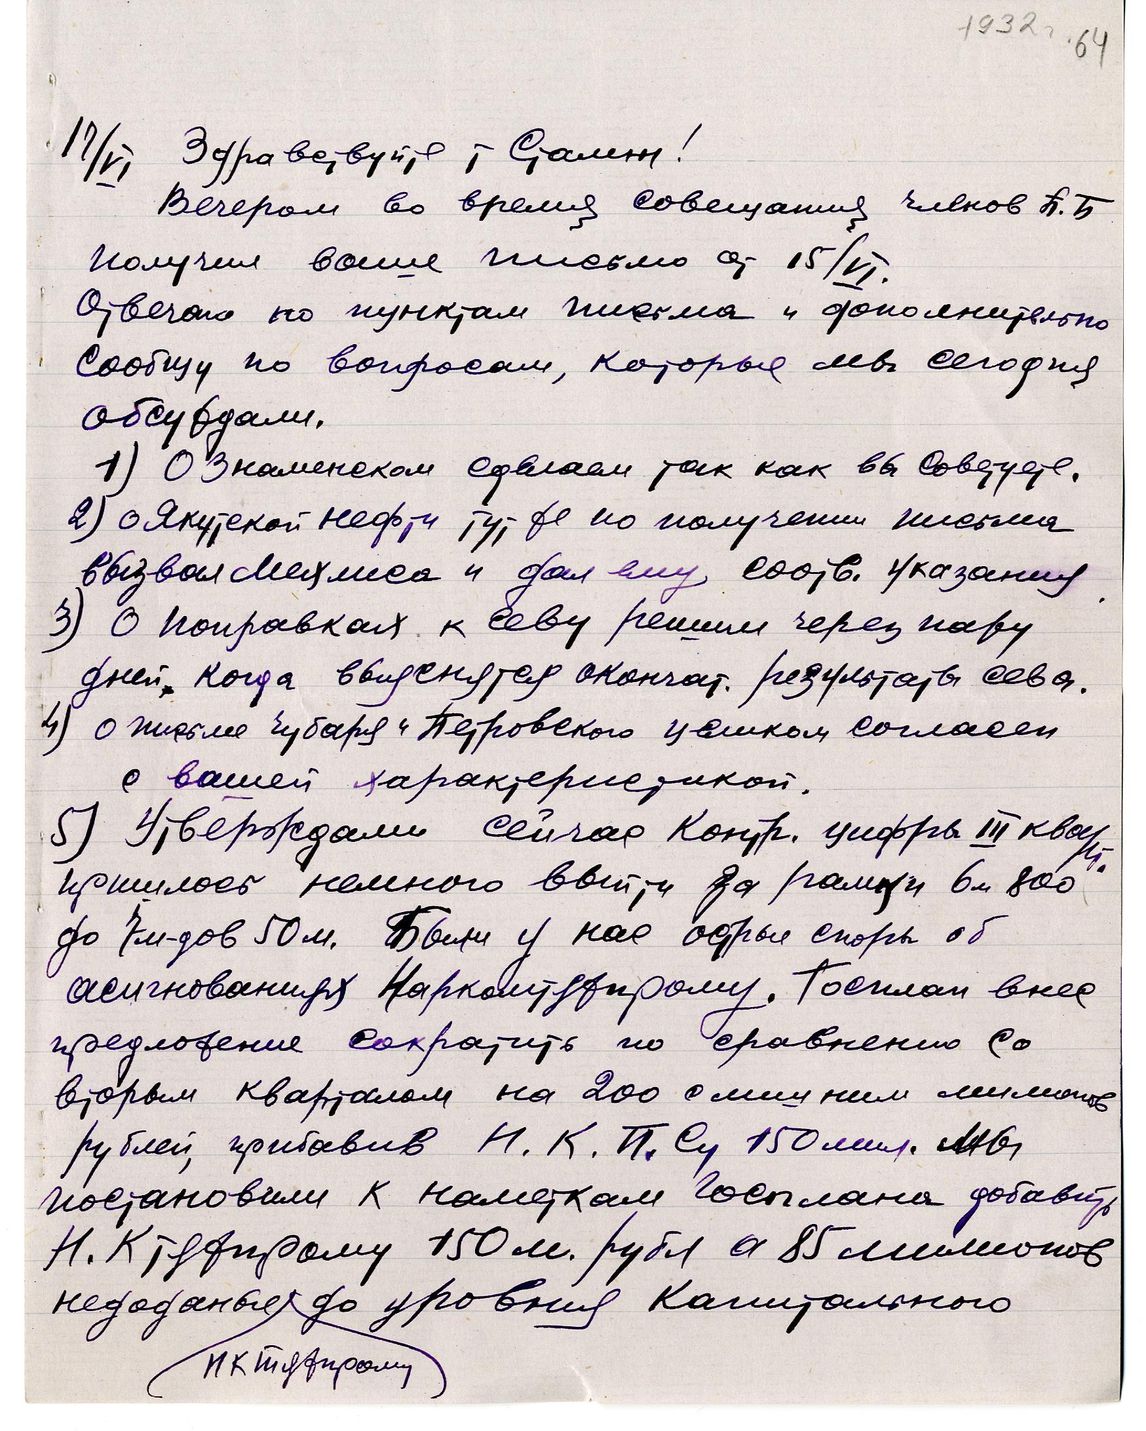 1932 г. 64
17/VI Здравствуйте т Сталин!
Вечером во время совещания членов П.Б
получил ваше письмо от 15/VI.
Отвечаю по пунктам письма и дополнительно
сообщу по вопросам, которые мы сегодня
обсуждали.
1) О Знаменском сделаем так как вы советуете.
2) о Якутской нефти тут же по получении письма
вызвал Мехлиса и дал ему соотв. указания
3) О поправках к севу решим через пару
дней, когда выяснятся окончат. результаты сева.
4) о письме Чубаря и Петровского целиком согласен
с вашей характеристикой.
5) Утверждали сейчас контр. цифры III кварт.
пришлось немного выйти за рамки 6 м 800
до 7 м-дов 50 м. Были у нас острые споры об
асигнованиях Наркомтяжпрому. Госплан внес
предложение сократить по сравнению со
вторым кварталом на 200 слишним милионов
рублей, прибавив Н.К.П.Су 150 мил. Мы
постановили к наметкам Госплана добавить
Н.Ктяжпрому 150 м. рубл а 85 милионов
недоданые до уровня капитального
НКтяжпрому